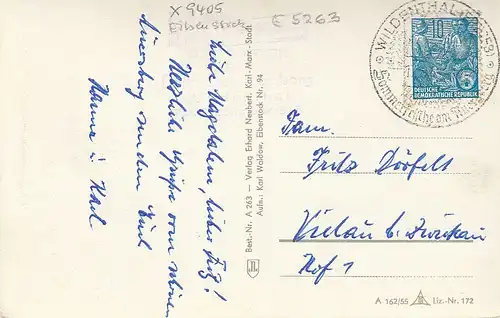 X 9405
Eibenstock
E 5263
Liebe Magdalena, lieber Fritz!
Herzliche Grüße vom schönen
Auersberg senden Euch
Hanna u. Karl
Best.-Nr. A 263 — Verlag Erhard Neubert, Karl-Marx-Stadt
Aufn.: Karl Waldow, Eibenstock Nr. 94
WILDENTHAL
DEUTSCHE
DEMOKRATISCHE REPUBLIK
5
Fam.
Fritz Dörfelt
Vielau b. Zwickau
Hof 1
A 162/55
Liz.-Nr. 172